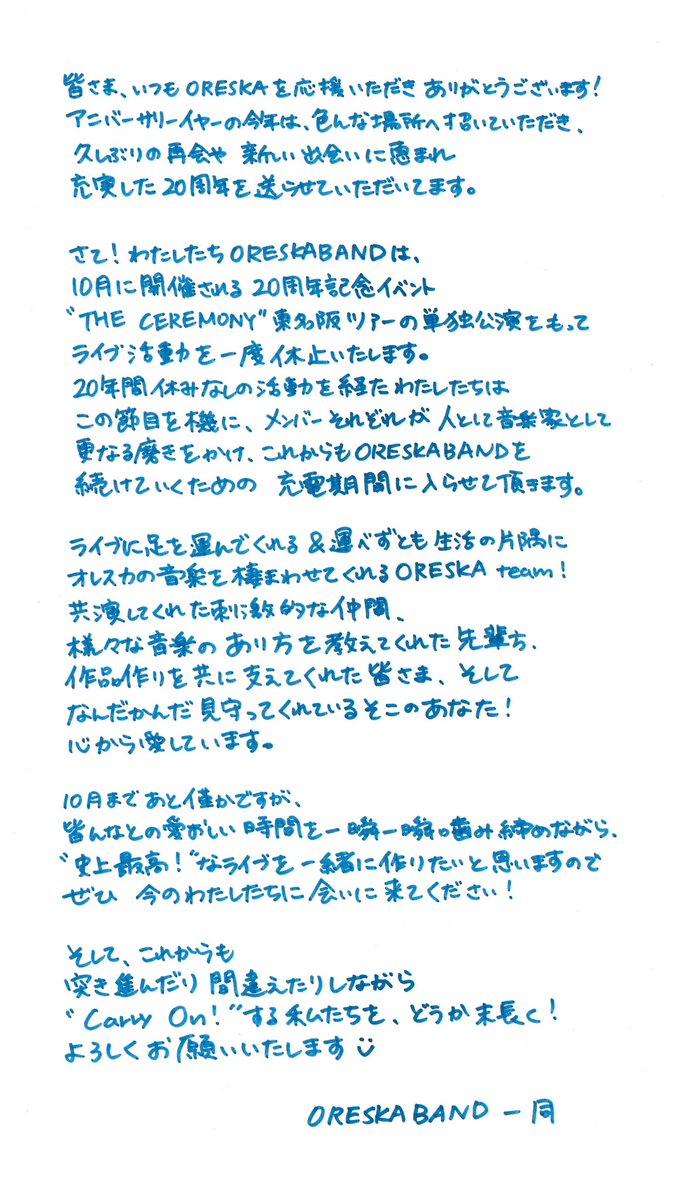 皆さま、いつもORESKAを応援いただきありがとうございます!
アニバーサリーイヤーの今年は、色んな場所へ招いていただき、
久しぶりの再会や 新しい出会いに恵まれ
充実した20周年を送らせていただいてます。
さて!わたしたちORESKABANDは、
10月に開催される 20周年記念イベント
"THE CEREMONY"東名阪ツアーの単独公演をもって
ライブ活動を一度休止いたします。
20年間休みなしの活動を経たわたしたちは
この節目を機に、メンバーそれぞれが 人として音楽家として
更なる磨きをかけ、これからもORESKABANDを
続けていくための 充電期間に入らせて頂きます。
ライブに足を運んでくれる &運べずとも生活の片隅に
オレスカの音楽を棲まわせてくれるORESKA team!
共演してくれた刺激的な仲間、
様々な音楽のあり方を教えてくれた先輩ち、
作品作りを共に支えてくれた皆さま、そして
なんだかんだ見守ってくれているそこのあなた!
心から愛しています。
10月まであと僅かですが、
皆んなとの愛おしい時間を一瞬一瞬噛み締めながら、
"史上最高!"なライブを一緒に作りたいと思いますので
ぜひ 今のわたしたちに会いに来てください!
そして、これからも
突き進んだり間違えたりしながら
"Carry On!"する私たちを、どうか末長く!
よろしくお願いいたします
ORESKABAND 一同